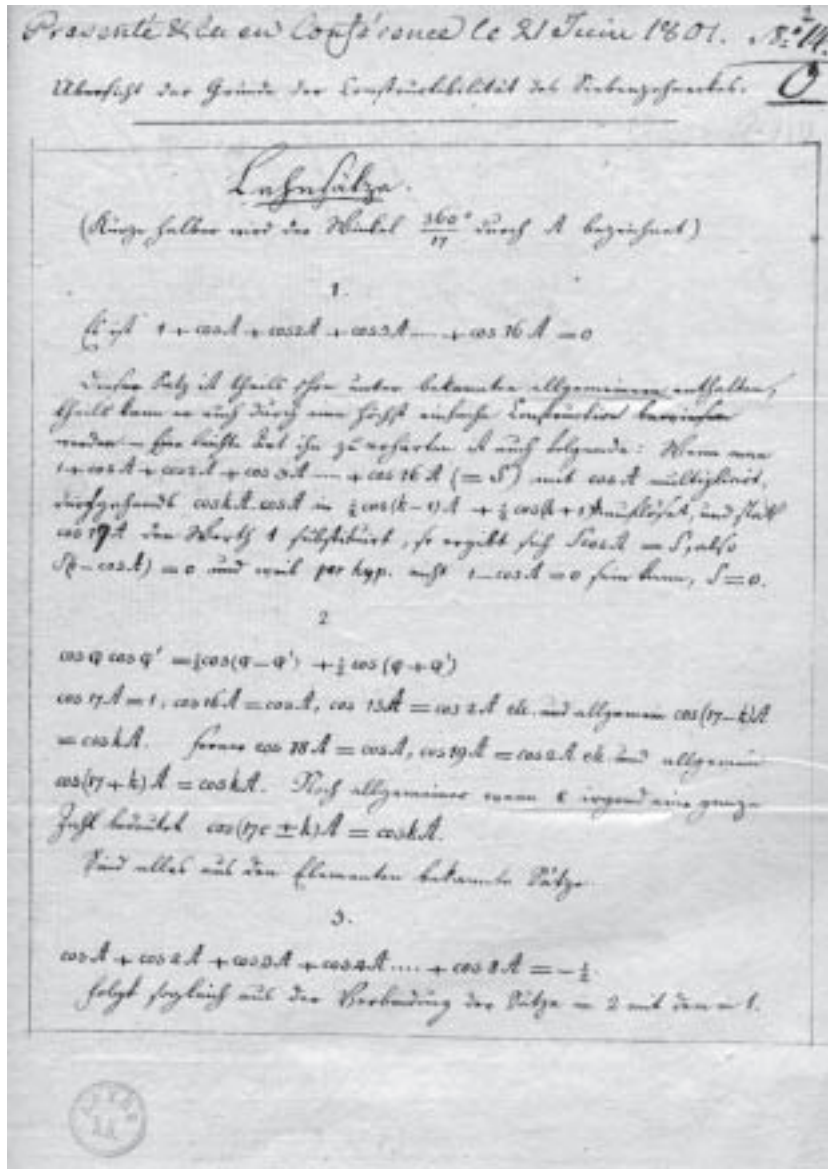 Presenté & lu en Conférence le 21 Juin 1801. No 14.
Übersicht der Gründe der Constructibilität des Siebenzehnecks.
Lehnsätze.
(Kürze halber wird der Winkel 360°/17 durch A bezeichnet)
1.
Es ist 1 + cos A + cos 2A + cos 3A .... + cos 16 A = 0
Dieser Satz ist theils schon unter bekannten allgemeinern enthalten,
theils kann er auch durch eine höchst einfache Construction bewiesen
werden – Eine leichte Art ihn zu erhärten ist auch folgende: Wenn man
1 + cos A + cos 2A + cos 3A .... + cos 16 A (= S) mit cos A multiplicirt,
durchgehends cos kA. cos A in ½ cos(k–1)A + ½ cos(k+1)A auflöset, und statt
cos 17A den Werth 1 substituirt, so ergibt sich S cos A = S, also
S(1 – cos A) = 0 und weil per hyp. nicht 1 – cos A = 0 sein kann, S = 0.
2
cos φ cos φ' = ½ cos(φ – φ') + ½ cos (φ + φ')
cos 17 A = 1, cos 16 A = cos A, cos 15 A = cos 2 A etc. und allgemein cos(17–k)A
= cos kA. ferner cos 18 A = cos A, cos 19 A = cos 2 A etc und allgemein
cos(17 + k) A = cos kA. Noch allgemeiner wenn e irgend eine ganze
Zahl bedeutet cos(17e ± k) A = cos kA.
Sind alles aus den Elementen bekannte Sätze.
3.
cos A + cos 2 A + cos 3 A + cos 4 A .... + cos 8 A = – ½
folgt sogleich aus der Verbindung der Sätze 2 mit dem 1.